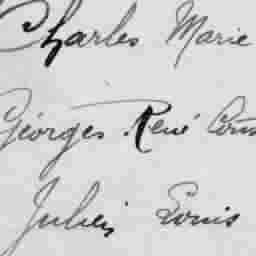 Charles Marie
Georges René
Julien Louis